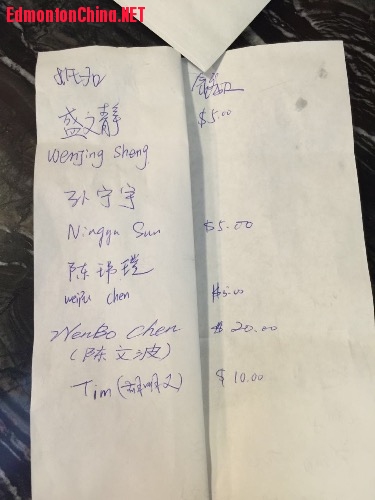 EdmontonChina.NET
盛文静 $5.00
Wenjing Sheng
孙宁宇
Ningyu Sun $5.00
陈玮璞
weipu chen $5.00
WenBo Chen $20.00
(陈文波)
Tim $10.00